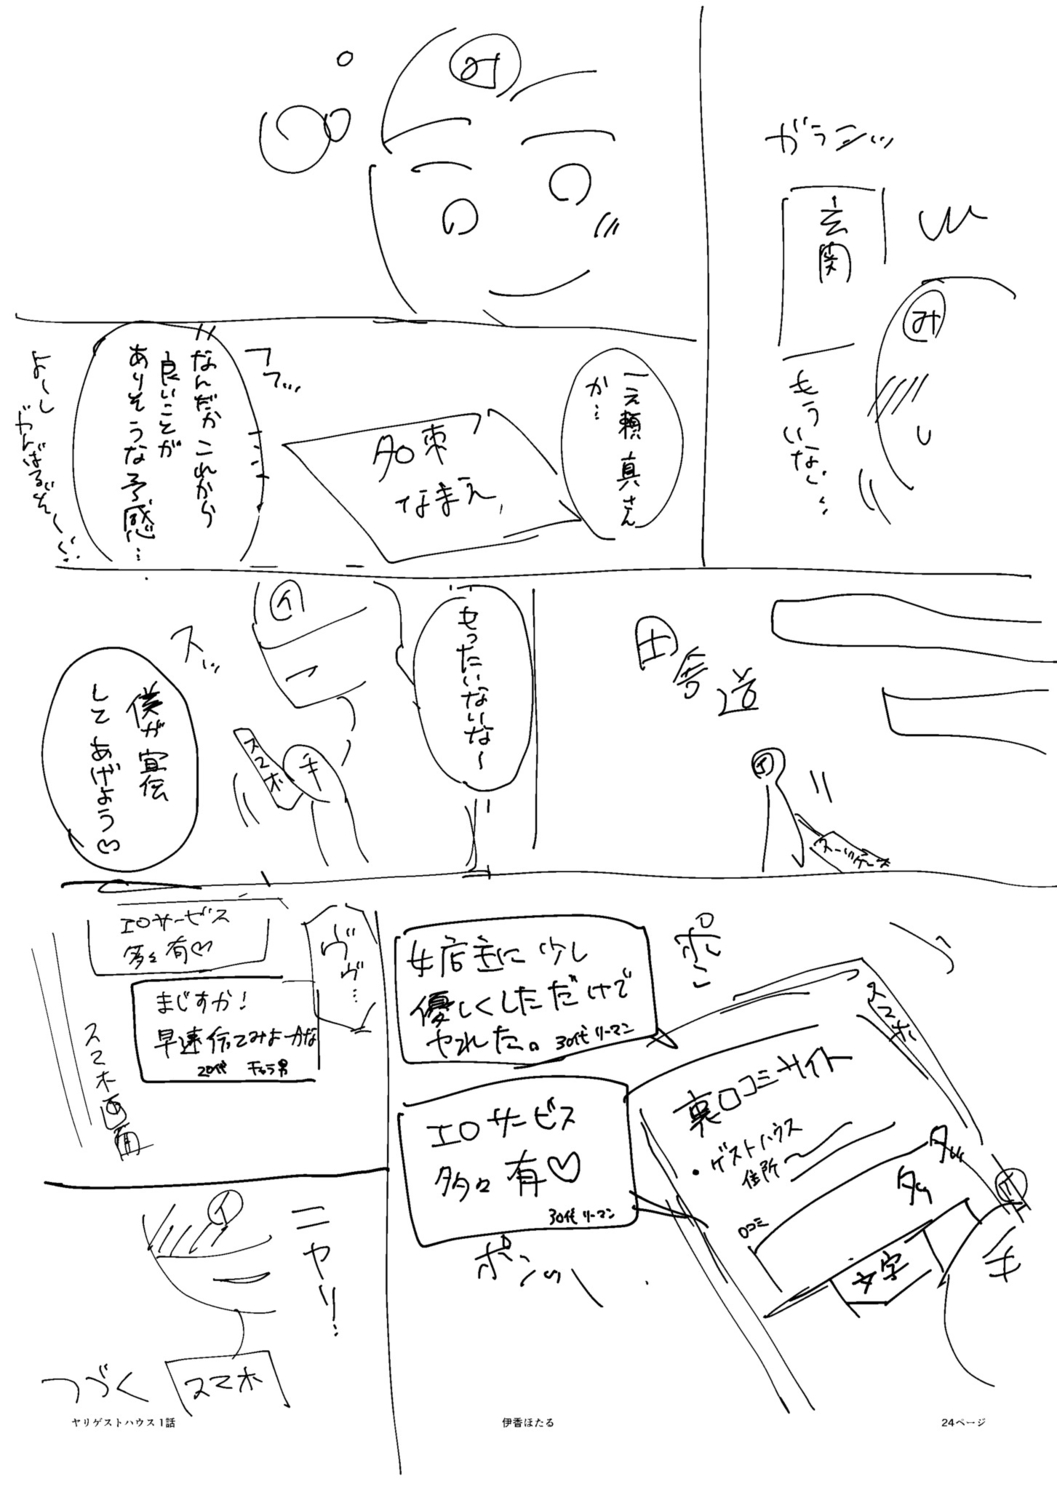 ガランッ
玄関
み
もういない…
み
一之瀬 真さん
か…
名束
なまえ
フフ…
なんだかこれから
良いことが
ありそうな予感…
よーし
がんばるぞ〜
田舎道
イ
イ
もったいないな〜
スッ
スマホ
手
僕が宣伝
してあげよう♡
スマホ
ポン
女店主に少し
優しくしただけで
ヤれた。 30代 リーマン
裏口コミサイト
・ゲストハウス
住所〜
口コミ
タッ
タッ
文字
イ
手
エロサービス
多々有♡
30代 リーマン
ポンッ
ヴヴ…
エロサービス
多々有♡
まじすか!
早速行ってみよーかな
20代 チャラ男
スマホ画面
イ
ニヤリ!
スマホ
つづく
ヤリゲストハウス1話
伊香ほたる
24ページ